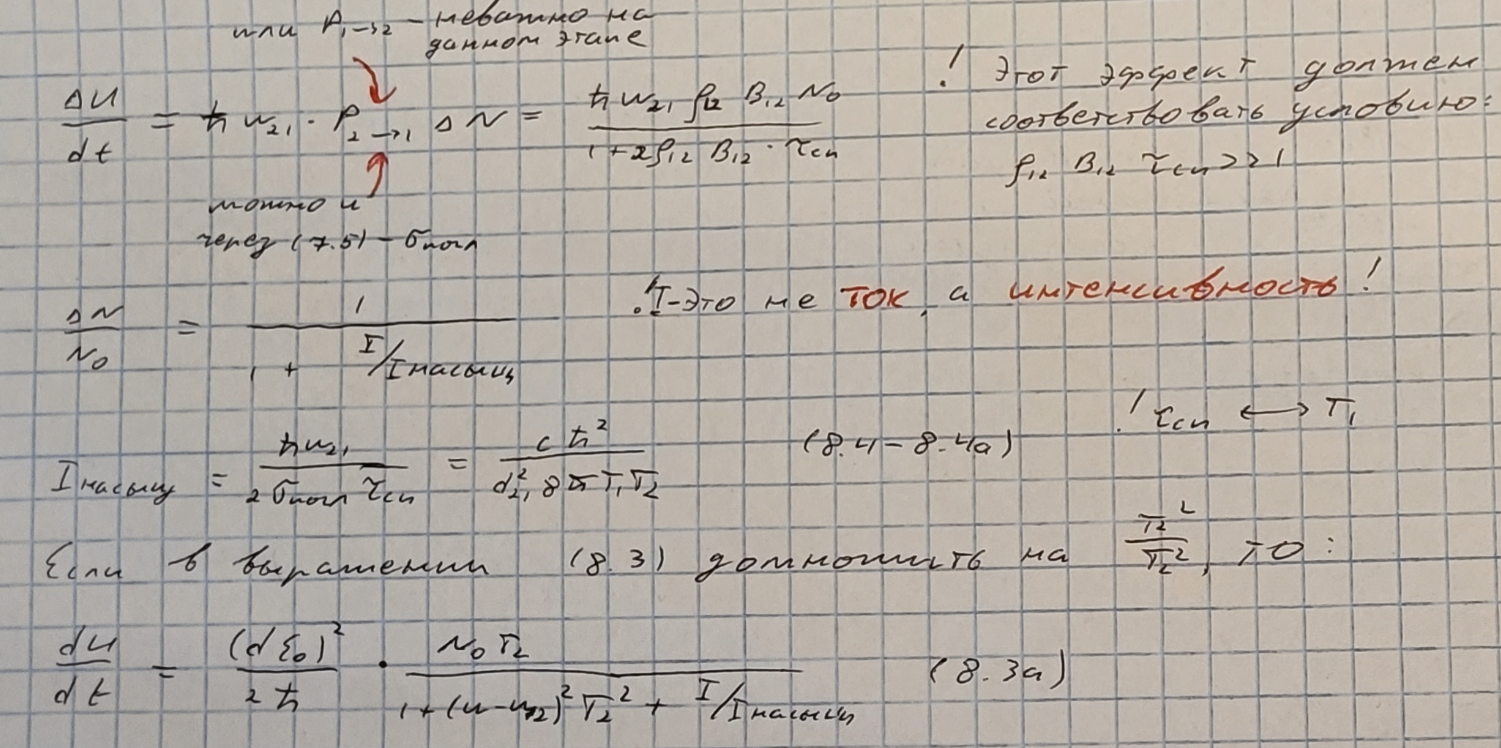 или P₁→₂ – неважно на
данном этапе
ΔU/dt = ħω₂₁ · P₂→₁ ΔN = ħω₂₁ρ₁₂B₁₂N₀ / (1+2ρ₁₂B₁₂·τсп)
! Этот эффект должен
соответствовать условию:
ρ₁₂ B₁₂ τсп >> 1
можно и
через (7.5) – σпогл
ΔN/N₀ = 1 / (1 + I/Iнасыщ)
! I – это не ток, а интенсивность!
! τсп ⟷ T₁
Iнасыщ = ħω₂₁ / (2σпогл τсп) = cħ² / (d₂₁² 8π T₁T₂) (8.4 – 8.4а)
Если в выражении (8.3) домножить на T₂²/T₂², то:
dU/dt = (dξ₀)²/2ħ · N₀T₂ / (1+(ω-ω₁₂)²T₂² + I/Iнасыщ) (8.3а)